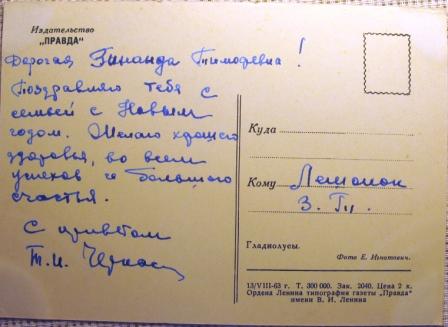 Издательство
„ПРАВДА"
Дорогая Зинаида Тимофевна!
Поздравляю тебя с
семьей с Новым
годом. Желаю хорошего
здоровья, во всем
успехов и большого
счастья.
С приветом
Т. И.
Куда
Кому
З. Т.
Гладиолусы.
Фото Е. Игнатович.
13/VIII-63 г. Т. 300 000. Зак. 2040. Цена 2 к.
Ордена Ленина типография газеты „Правда"
имени В. И. Ленина